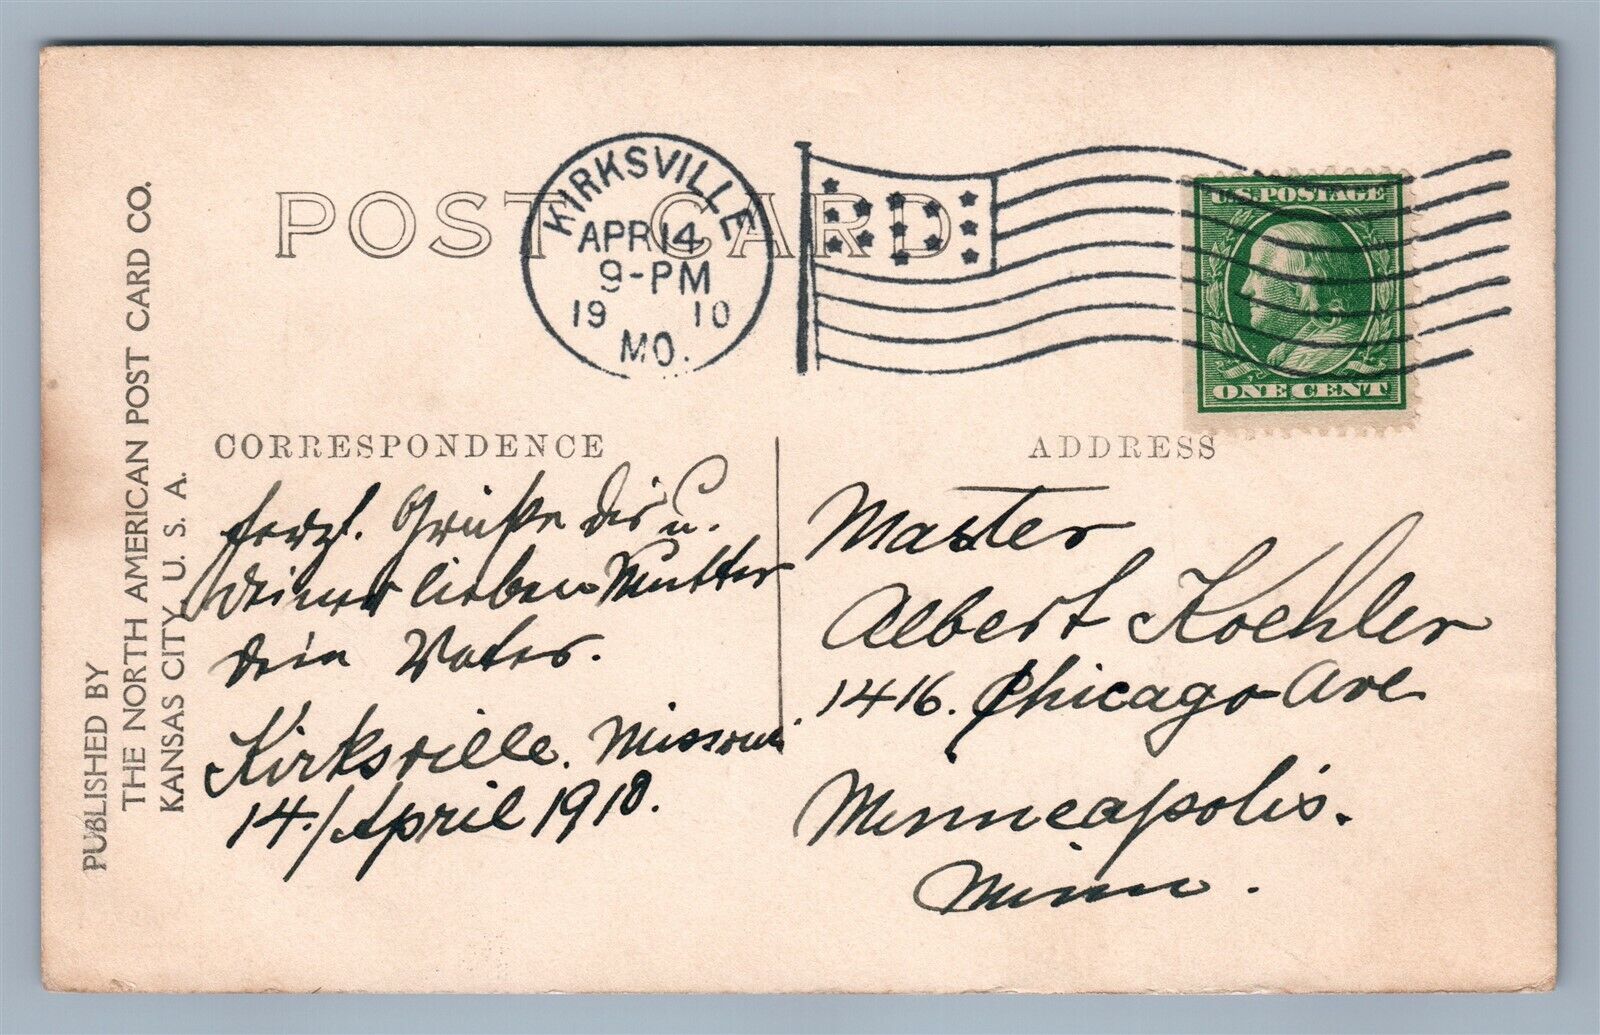 POST CARD
KIRKSVILLE
APR 14
9-PM
1910
MO.
U.S. POSTAGE
ONE CENT
PUBLISHED BY
THE NORTH AMERICAN POST CARD CO.
KANSAS CITY, U. S. A.
CORRESPONDENCE
Herzl. Grüße Dir u.
Deiner lieben Mutter
Dein Vater.
Kirksville. Missouri
14./April 1910.
ADDRESS
Master
Albert Koehler
1416. Chicago Ave
Minneapolis.
Minn.